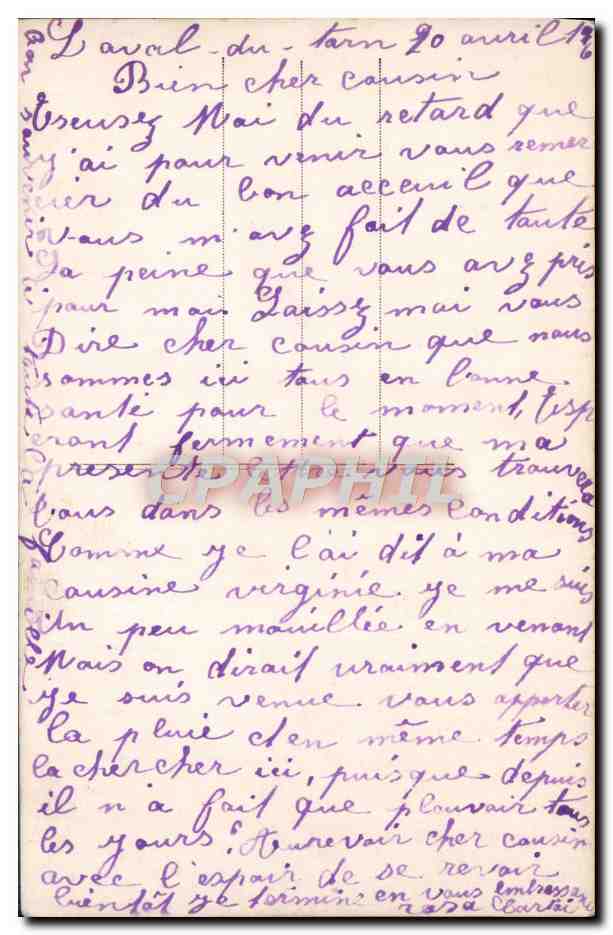 Laval-du-tarn 20 avril 1
Bien cher cousin
Escusez Moi du retard que
j'ai pour venir vous remer
cier du bon acceuil que
vous m'avez fait de toute
la peine que vous avez pris
pour moi Laissez moi vous
Dire cher cousin que nous
sommes ici tous en bonne
santé pour le moment, Esp
erant fermement que ma
presente vous trouvera
tous dans les mêmes conditions
Comme je l'ai dit à ma
cousine virginie je me suis
un peu mouillée en venant
Mais on dirait vraiment que
je suis venue vous apporter
la pluie et en même temps
la chercher ici, puisque depuis
il n'a fait que plouvoir tous
les yours. Aurevoir cher cousin
avec l'espoir de se revoir
bientôt je termine en vous embrassant
rosa
bon souvenir à toute la famille
CPAPHIL